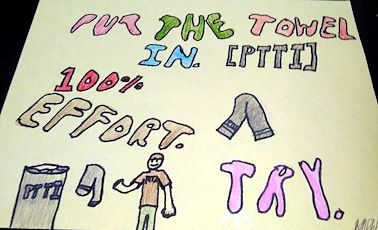 PUT THE TOWEL
IN. [PTTI]
100%
EFFORT.
PTTI
TRY.